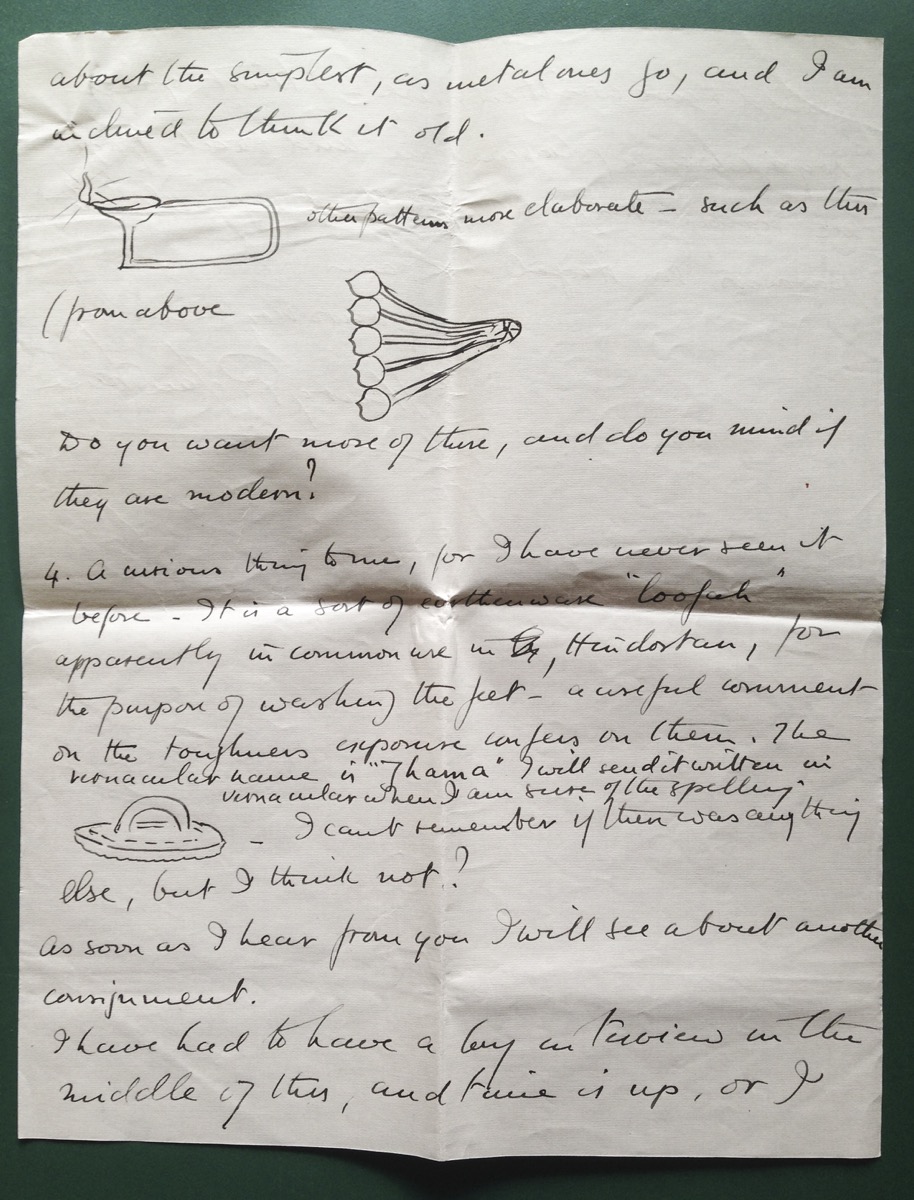 about the simplest, as metal ones go, and I am
inclined to think it old.
other patterns more elaborate – such as this
(from above
Do you want more of these, and do you mind if
they are modern?
4. A curious thing to me, for I have never seen it
before – It is a sort of earthenware "loofah"
apparently in common use in , Hindostan, for
the purpose of washing the feet – a useful comment
on the toughness exposure confers on them. The
vernacular name is "Jhama" I will send it written in
vernacular when I am sure of the spelling.
– I cant remember if there was anything
else, but I think not?
As soon as I hear from you I will see about another
consignment.
I have had to have a long interview in the
middle of this, and time is up, or I